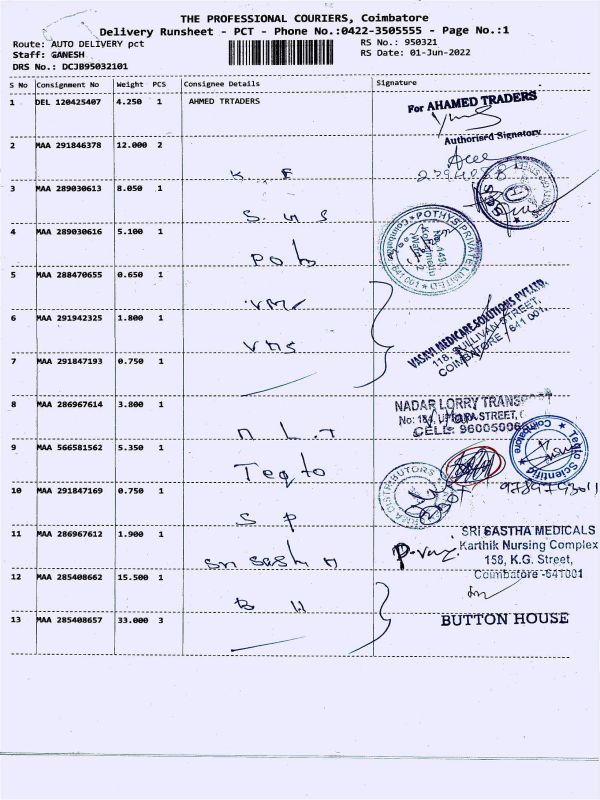 THE PROFESSIONAL COURIERS, Coimbatore
Delivery Runsheet - PCT - Phone No.:0422-3505555 - Page No.:1
Route: AUTO DELIVERY pct
RS No.: 950321
Staff: GANESH
RS Date: 01-Jun-2022
DRS No.: DCJB95032101
S No Consignment No Weight PCS Consignee Details Signature
1 DEL 120425407 4.250 1 AHMED TRTADERS
For AHAMED TRADERS
Authorised Signatory
2 MAA 291846378 12.000 2
K F
3 MAA 289030613 8.050 1
S.M S
4 MAA 289030616 5.100 1
POTHYS PRIVATE LIMITED
Coimbatore 641 001
5 MAA 288470655 0.650 1
VMS
6 MAA 291942325 1.800 1
VMS
VASAVI MEDICARE SOLUTIONS PVT.LTD.
118, SULLIVAN STREET,
COIMBATORE - 641 001.
7 MAA 291847193 0.750 1
8 MAA 286967614 3.800 1
N L.T
NADAR LORRY TRANSPORT
CELL: 96005006
9 MAA 566581562 5.350 1
Teqto
Teqto Scientific
Coimbatore
10 MAA 291847169 0.750 1
S P
11 MAA 286967612 1.900 1
Sri Sastha M
SRI SASTHA MEDICALS
Karthik Nursing Complex
158, K.G. Street,
Coimbatore -641001
12 MAA 285408662 15.500 1
B H
13 MAA 285408657 33.000 3
BUTTON HOUSE